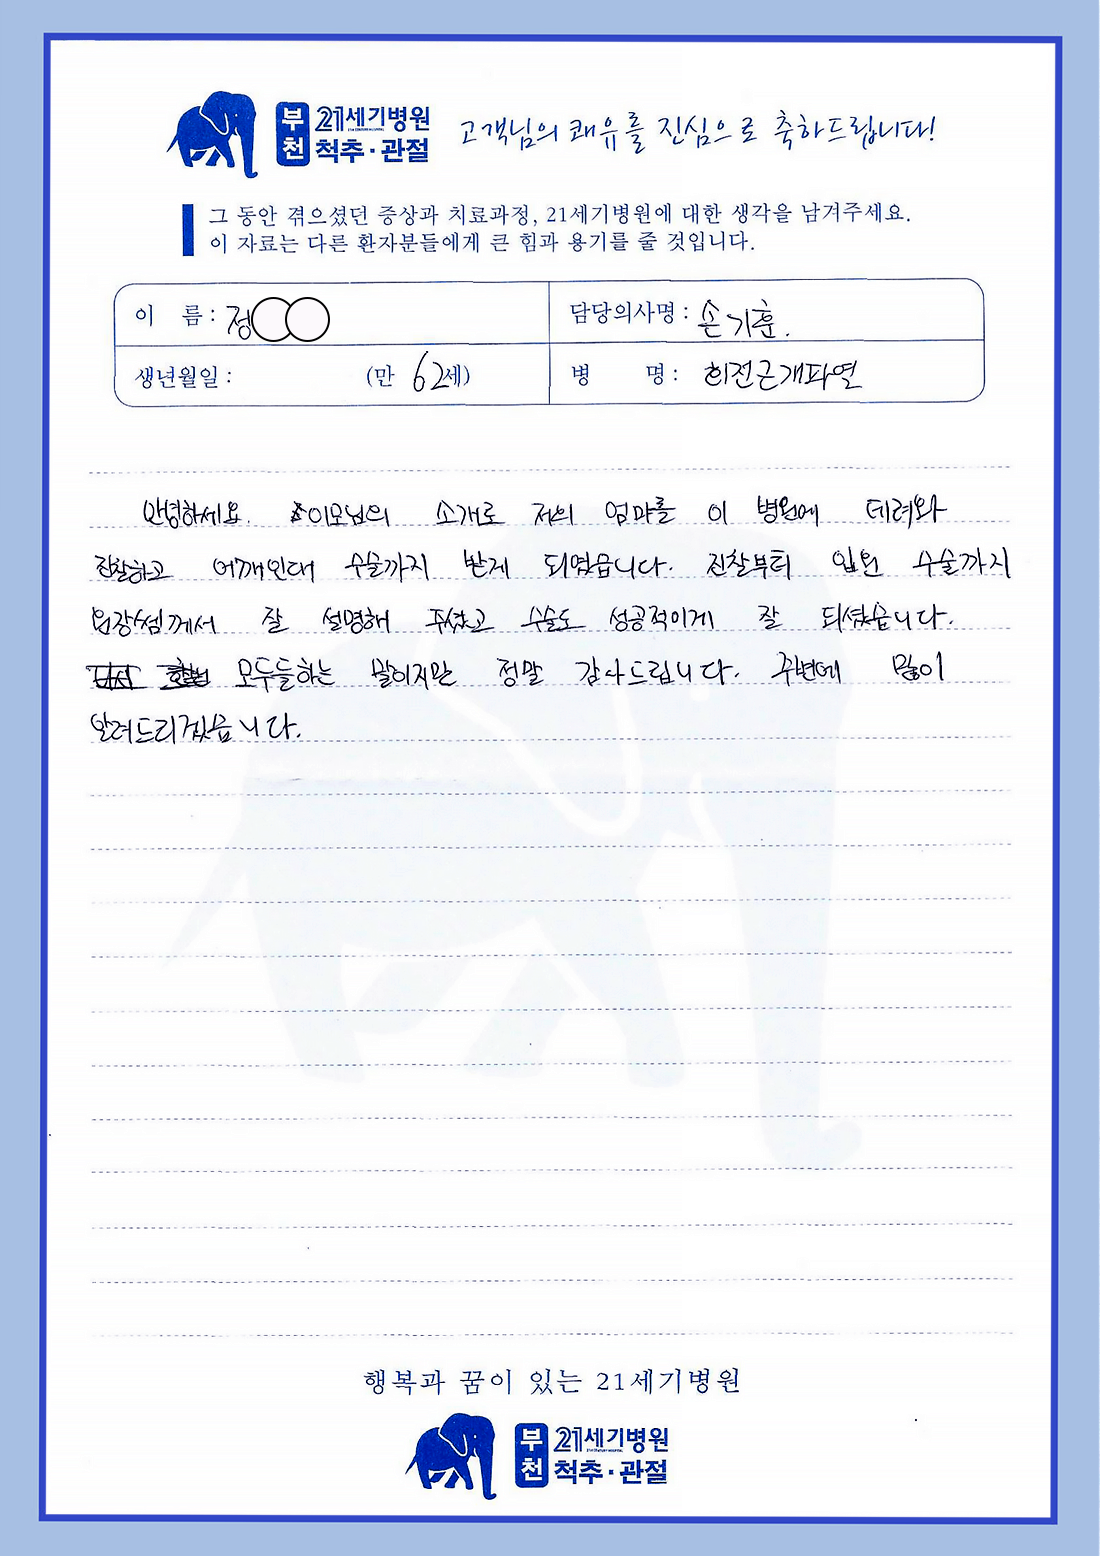 부천 21세기병원 척추·관절
고객님의 쾌유를 진심으로 축하드립니다!
그 동안 겪으셨던 증상과 치료과정, 21세기병원에 대한 생각을 남겨주세요.
이 자료는 다른 환자분들에게 큰 힘과 용기를 줄 것입니다.
이 름 : 정 담당의사명 : 손기훈.
생년월일 : (만 62세) 병 명 : 회전근개파열
안녕하세요. 이모님의 소개로 저의 엄마를 이 병원에 데려와
진찰하고 어깨인대 수술까지 받게 되었습니다. 진찰부터 입원 수술까지
원장쌤께서 잘 설명해 주셨고 수술도 성공적이게 잘 되셨습니다.
모두들하는 말이지만 정말 감사드립니다. 주변에 많이
알려드리겠습니다.
행복과 꿈이 있는 21세기병원
부천 21세기병원 척추·관절